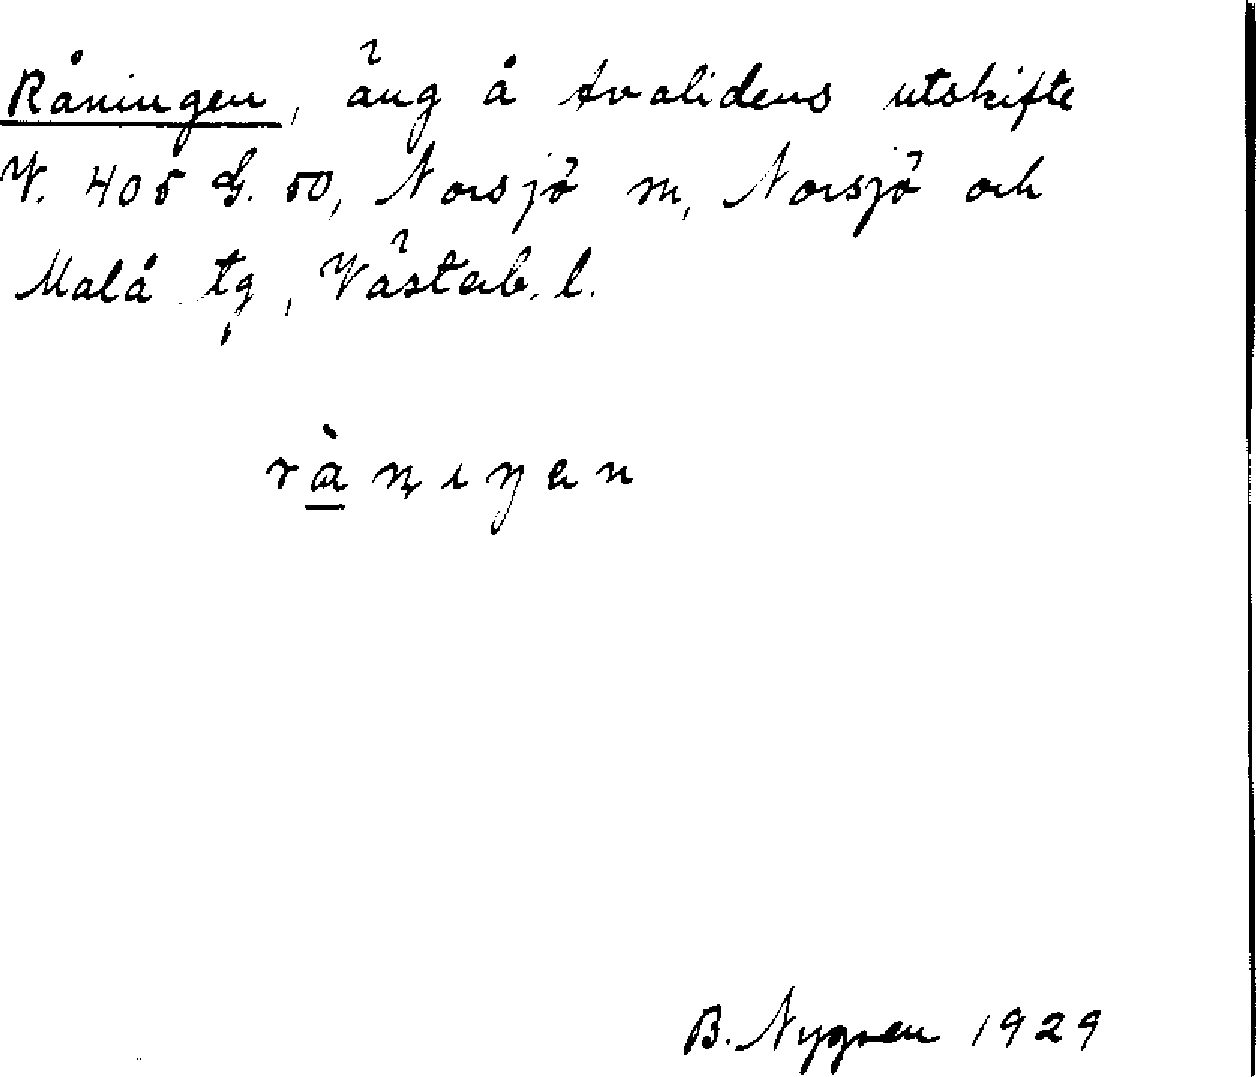 Råningen, äng å Svalidens utskifte
V. 405 G. 50, Norsjö m, Norsjö och
Malå tg, Västerb. l.
ràningen
B. Nygren 1929